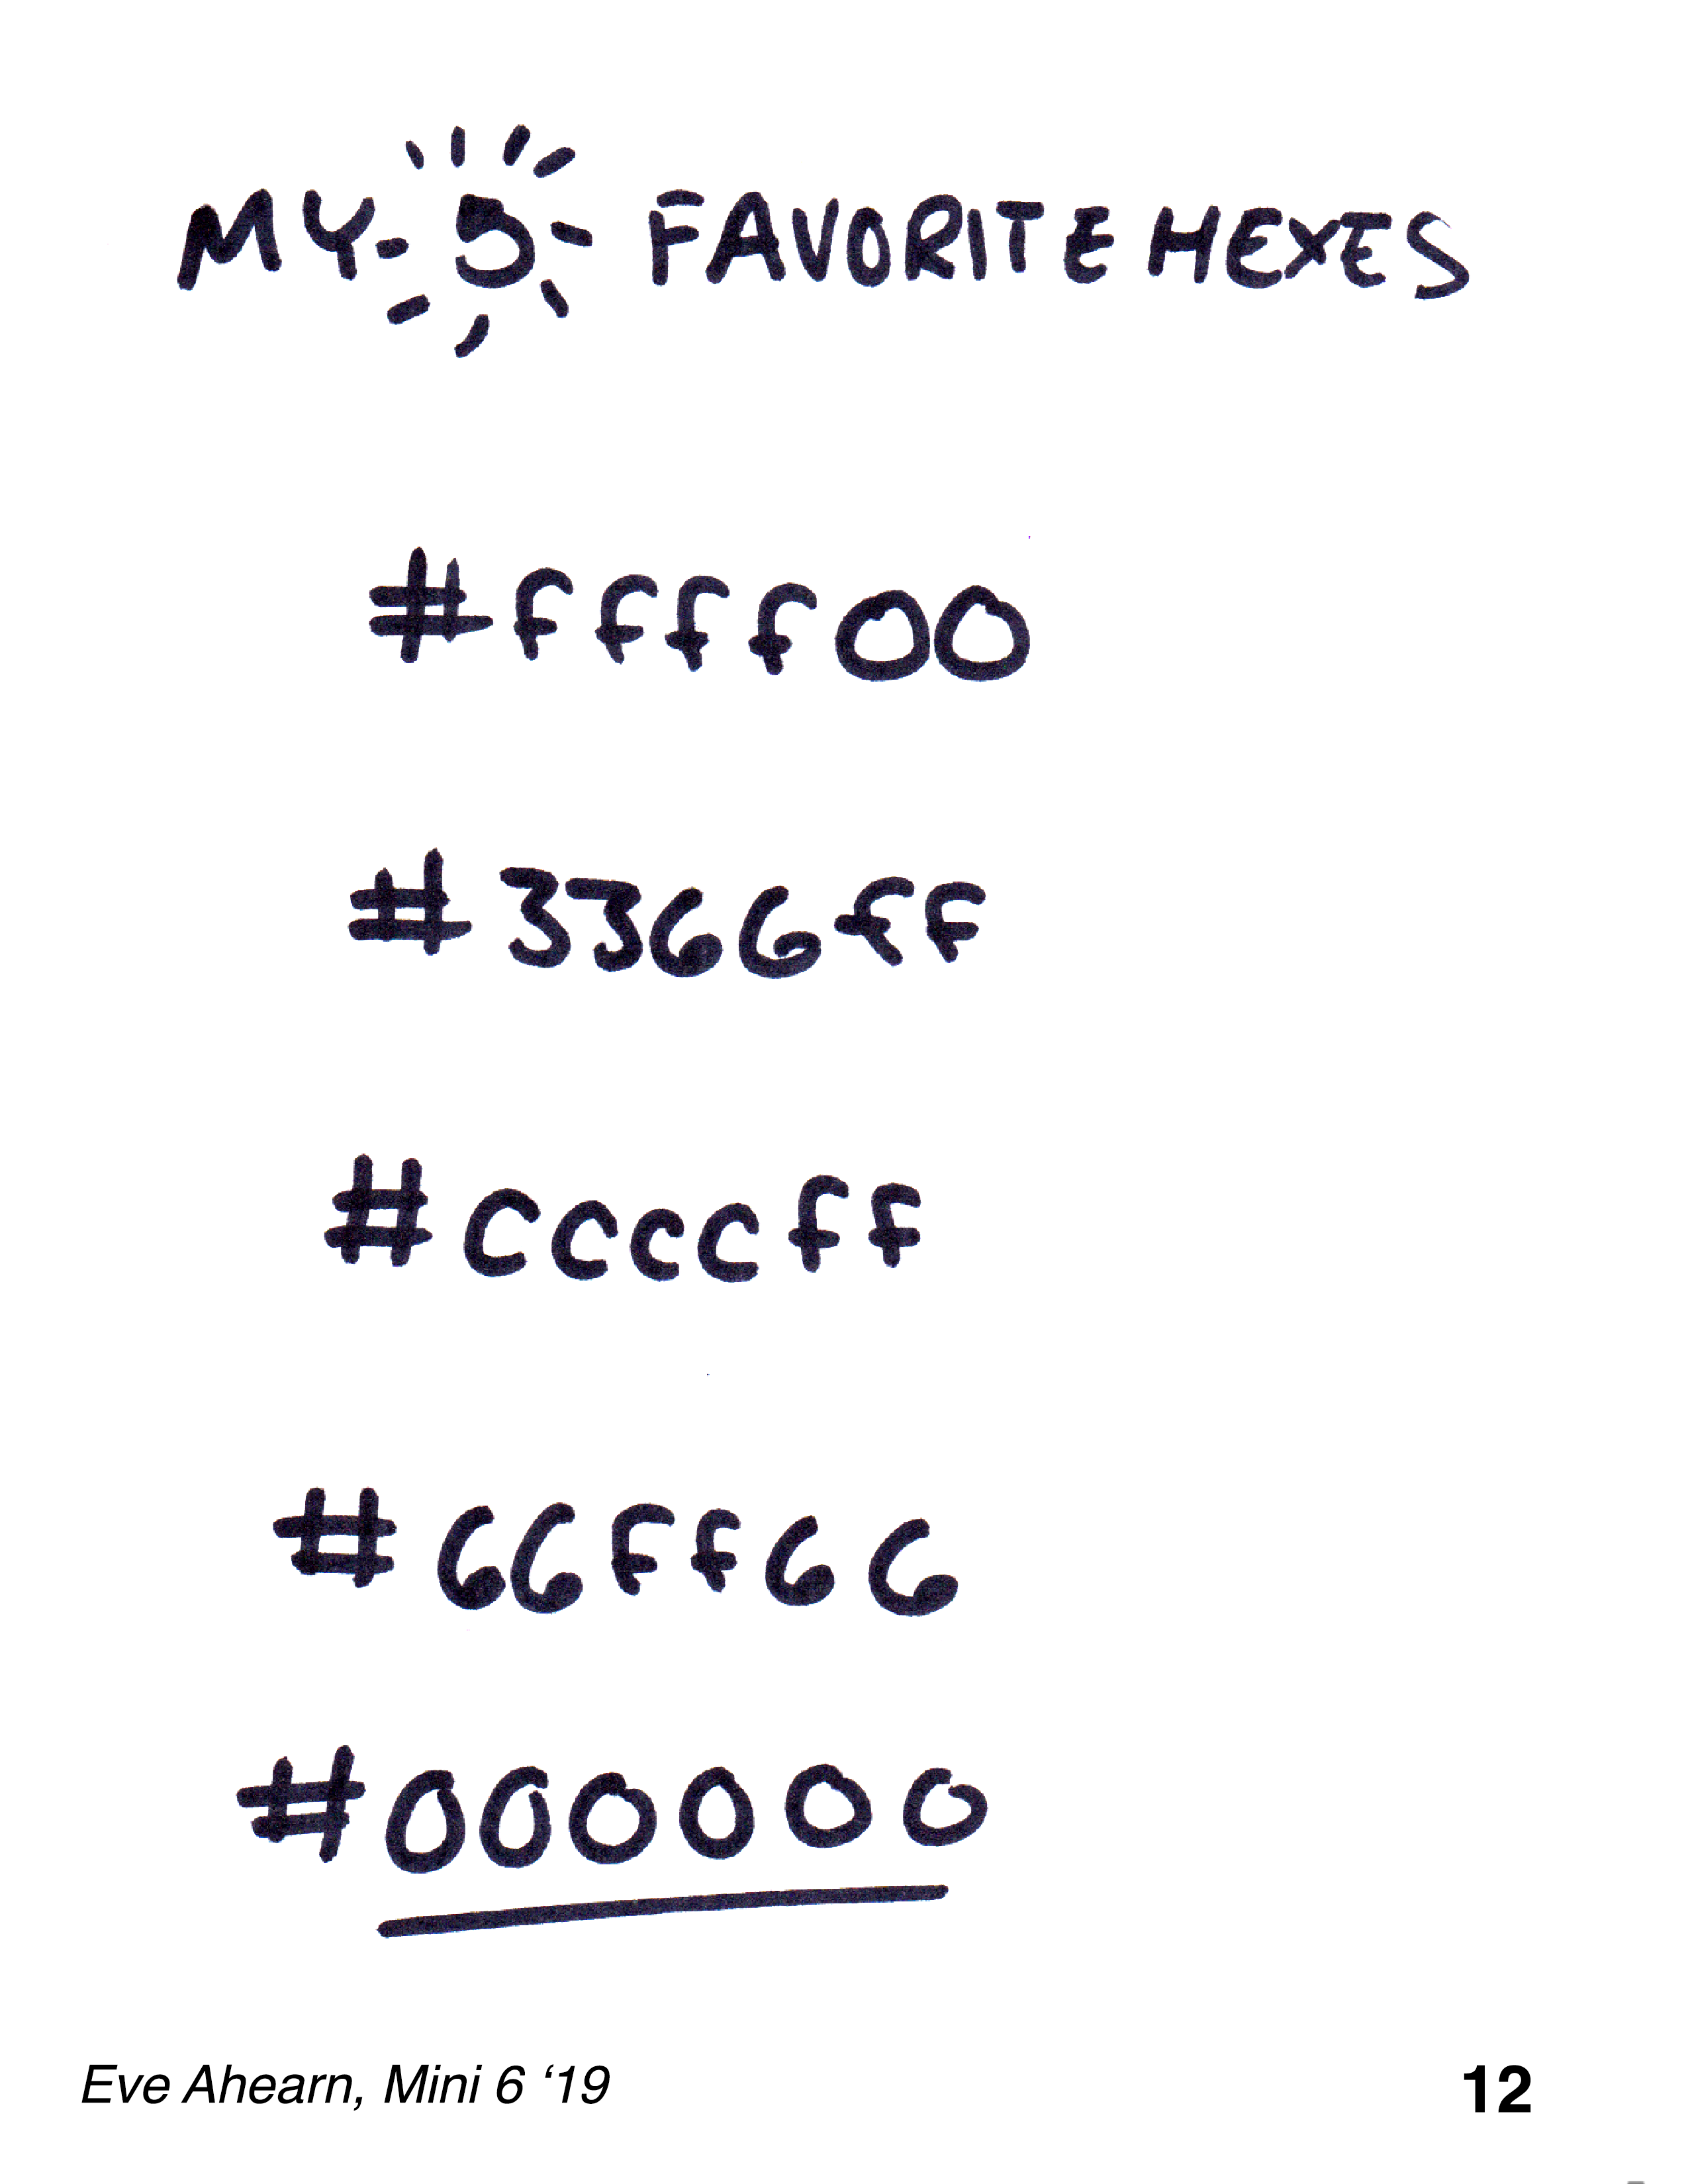 MY 5 FAVORITE HEXES
#ffff00
#3366ff
#ccccff
#66ff66
#000000
Eve Ahearn, Mini 6 ‘19
12